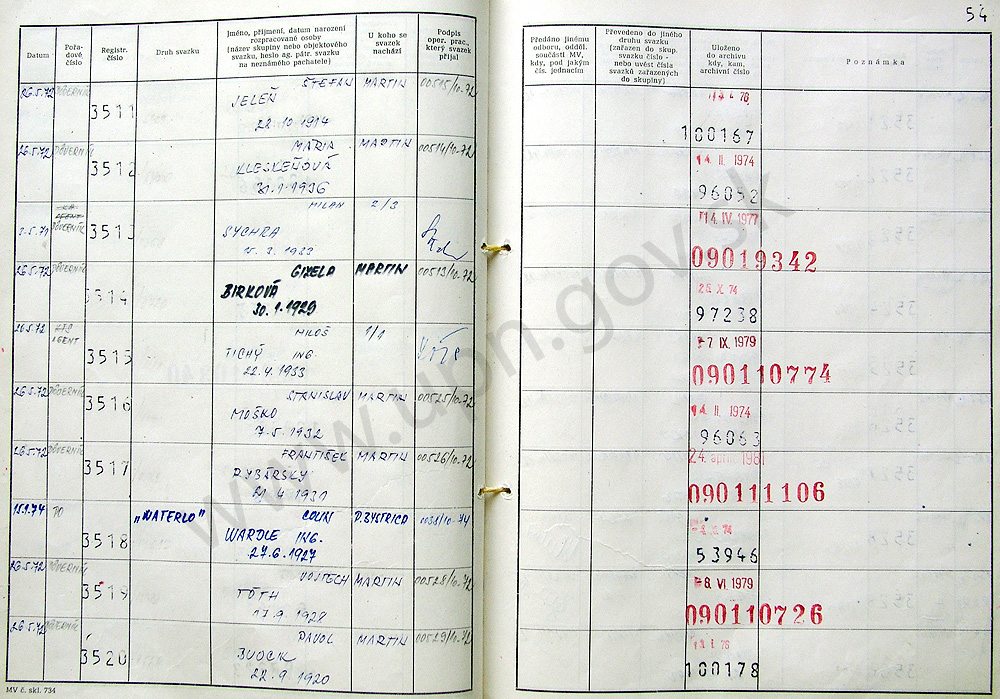 54
Datum
Pořa-
dové
číslo
Registr.
číslo
Druh svazku
Jméno, příjmení, datum narození
rozpracované osoby
(název skupiny nebo objektového
svazku, heslo ag. pátr. svazku
na neznámého pachatele)
U koho se
svazek
nachází
Podpis
oper. prac.,
který svazek
přijal
Předáno jinému
odboru, odděl.
součásti MV,
kdy, pod jakým
čís. jednacím
Převedeno do jiného
druhu svazku
(zařazen do skup.
svazku číslo -
nebo uvést čísla
svazků zařazených
do skupiny)
Uloženo
do archivu
kdy, kam,
archivní číslo
Poznámka
26.5.72 DÔVERNÍK 3511 ŠTEFAN MARTIN 00515/10-72
JELEŇ
28.10.1914
76
100167
26.5.72 DÔVERNÍK 3512 MÁRIA MARTIN 00514/10-72
KLESKEŇOVÁ
30.1.1936
14. II. 1974
96052
AGENT
DÔVERNÍK 3513 MILAN 2/3
SYCHRA
15.3.1933
14. IV. 1977
09019342
26.5.72 DÔVERNÍK 3514 GIZELA MARTIN 00513/10-72
BIRKOVÁ
30.1.1929
25. X. 74
97238
AGENT 3515 MILOŠ 1/1
TICHÝ ING.
22.4.1933
-7 IX. 1979
090110774
26.5.72 DÔVERNÍK 3516 STANISLAV MARTIN 00525/10-72
MOŠKO
7.5.1932
14. II. 1974
96063
26.5.72 DÔVERNÍK 3517 FRANTIŠEK MARTIN 00526/10-72
RYBÁRSKY
21.4.1930
24. apríl 1981
090111106
15.1.74 PO 3518 „WATERLO" COLIN B.BYSTRICA 0031/10-74
WARDLE ING.
27.6.1927
74
53946
26.5.72 DÔVERNÍK 3519 VOJTECH MARTIN 00528/10-72
TÓTH
17.9.1928
-8. VI. 1979
090110726
26.5.72 DÔVERNÍK 3520 PAVOL MARTIN 00529/10-72
22.9.1920
76
100178
MV č. skl. 734
www.upn.gov.sk